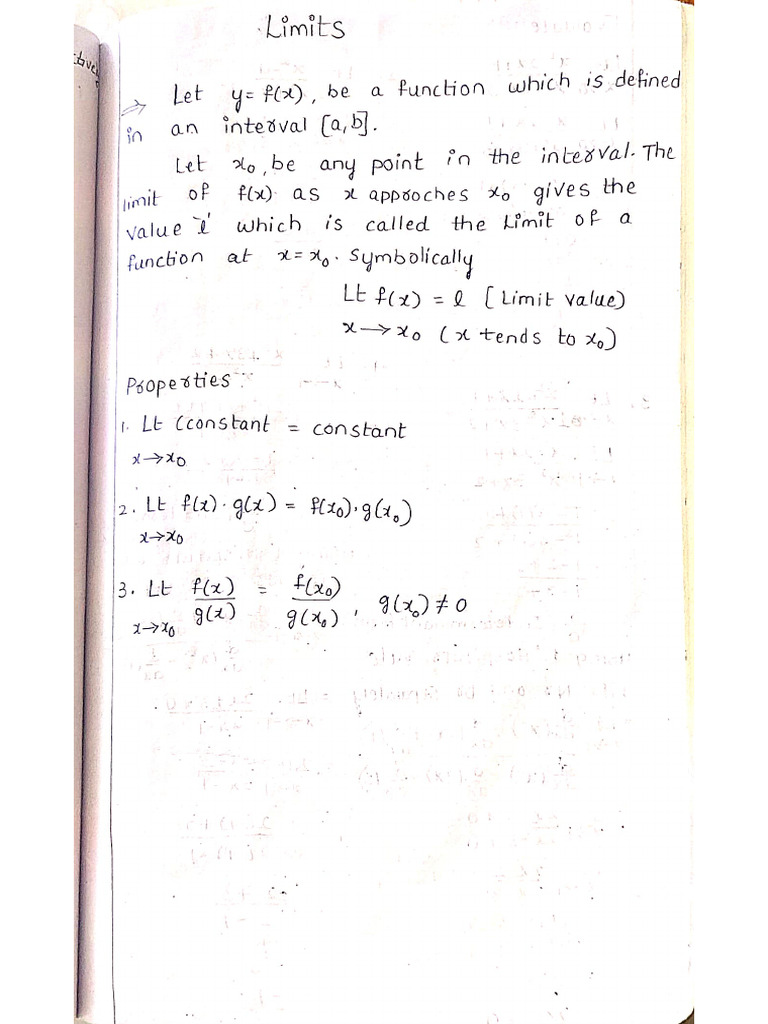 Limits
⇒ Let y = f(x), be a function which is defined
in an interval [a,b].
Let x₀, be any point in the interval. The
limit of f(x) as x approches x₀ gives the
value 'l' which is called the Limit of a
function at x = x₀. Symbolically
Lt f(x) = l [Limit value)
x → x₀ (x tends to x₀)
Properties
1. Lt (constant = constant
x→x₀
2. Lt f(x) · g(x) = f(x₀) · g(x₀)
x→x₀
3. Lt f(x)/g(x) = f(x₀)/g(x₀), g(x₀) ≠ 0
x→x₀